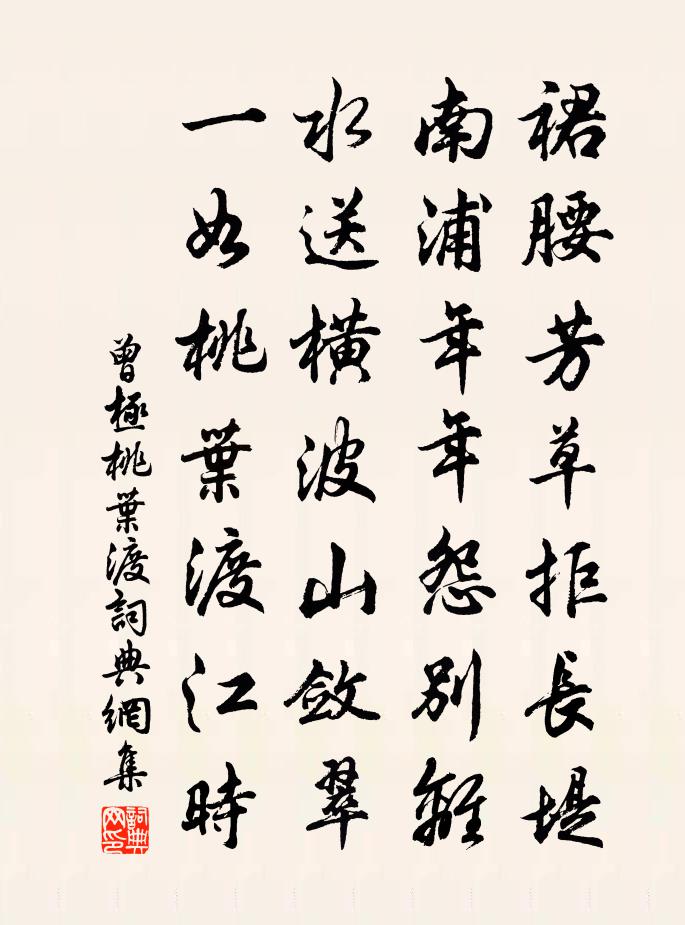 裙腰芳草拒長堤
南浦年年怨別離
水送橫波山斂翠
一如桃葉渡江時
曾極桃葉渡詞典網集
詞典网印